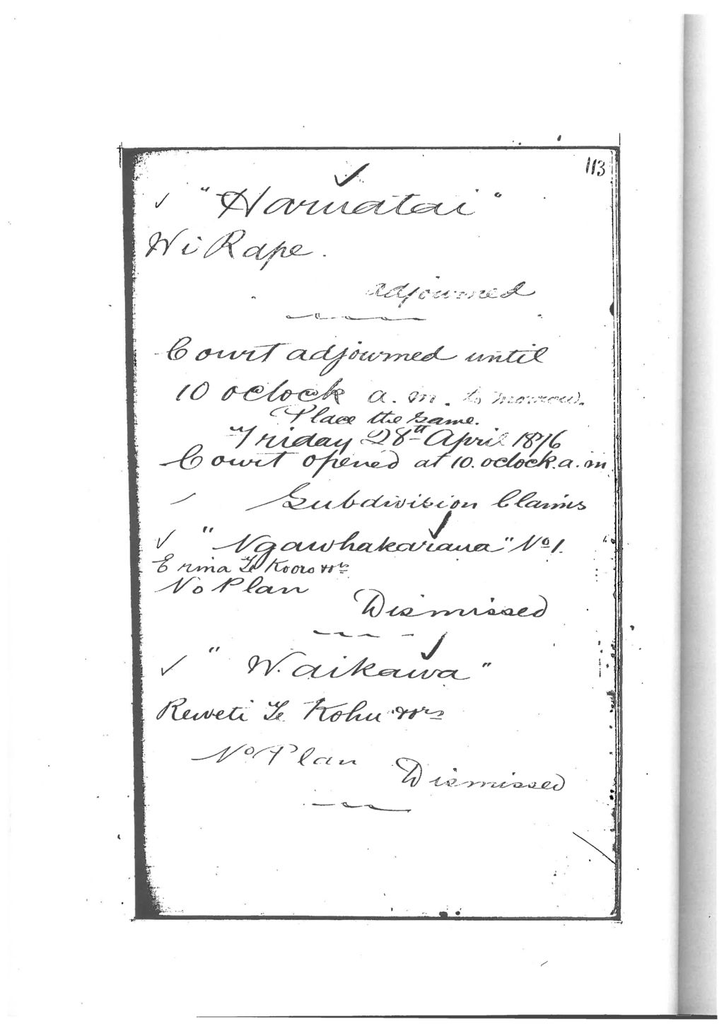 113
"Haruatai"
Wi Rape.
adjourned
Court adjourned until
10 oclock a.m. to morrow.
Place the same.
Friday 28th April 1876
Court opened at 10. oclock. a.m.
Subdivision Claims
"Ngawhakaraua" No 1.
Erina Te Kooro ors
No Plan
Dismissed
"Waikawa"
Reweti Te Kohu ors
No Plan
Dismissed